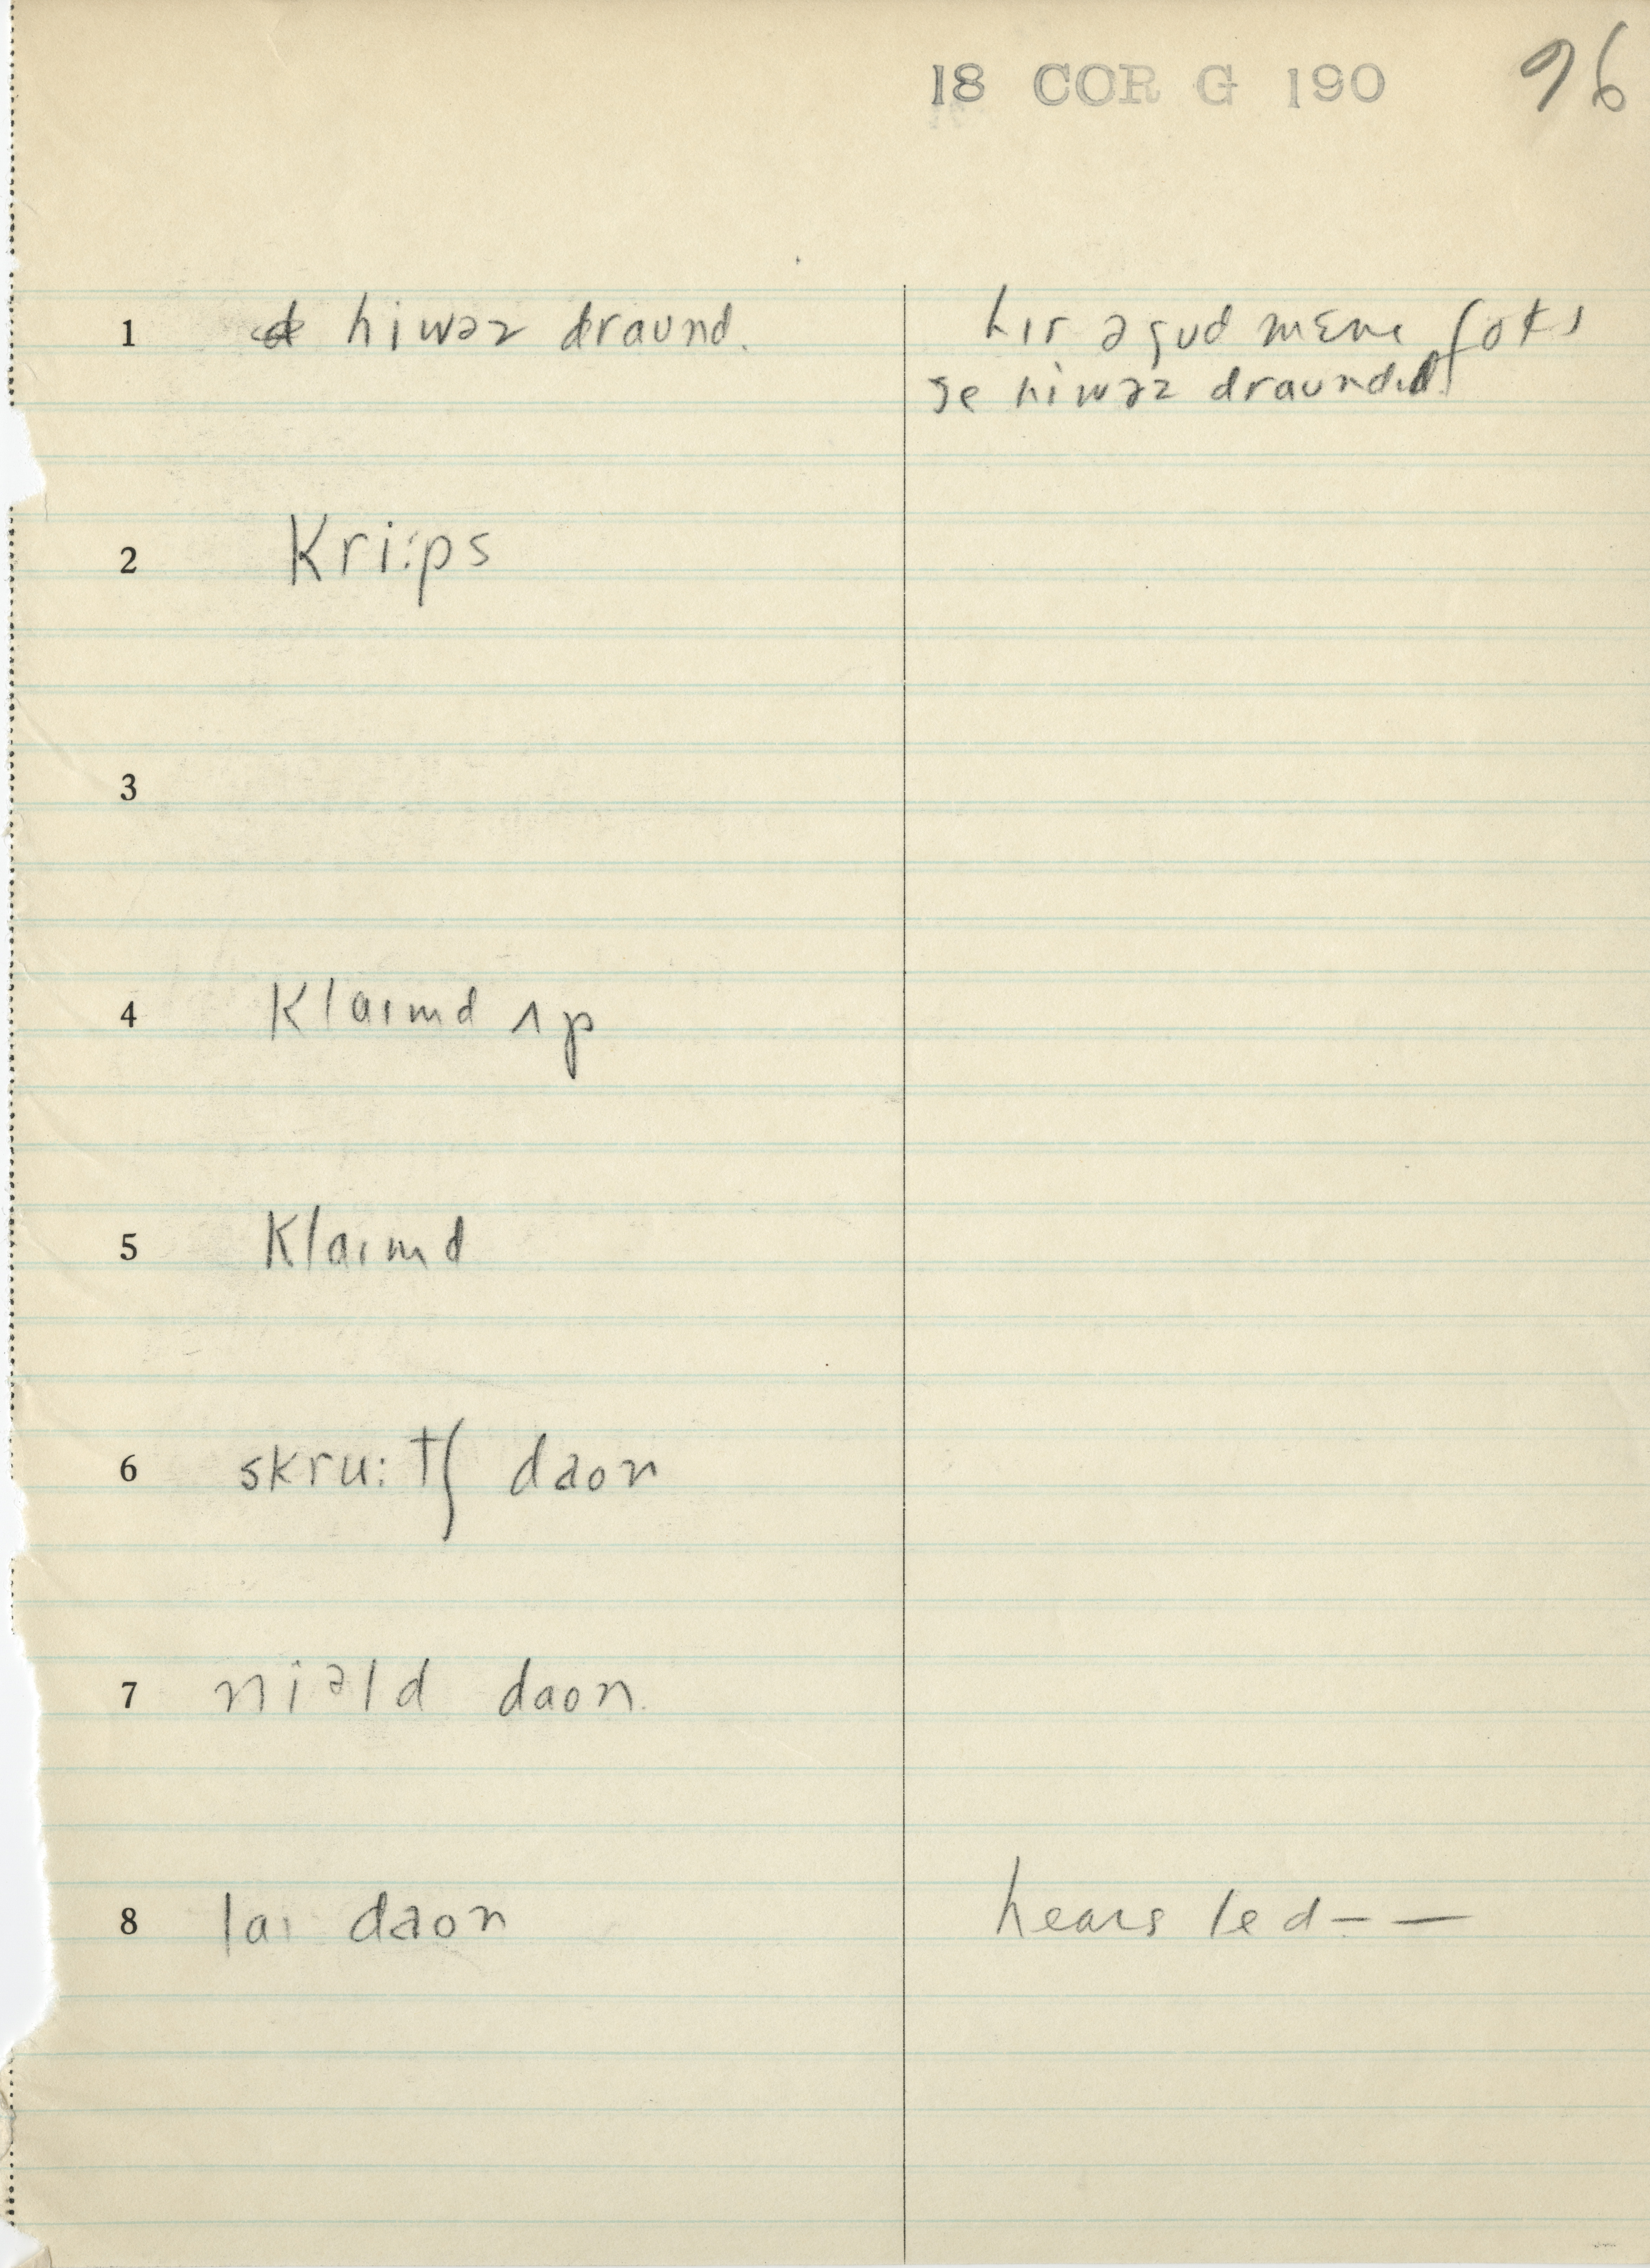 18 COR G 190 96
1 hiwəz draund. hɪr ə gud mɛnɪ foks
se hiwəz draundɪd
2 kri:ps
3
4 klaɪmd ʌp
5 klaɪmd
6 skru:tʃ daon
7 niəld daon.
8 laɪ daon hears led – —